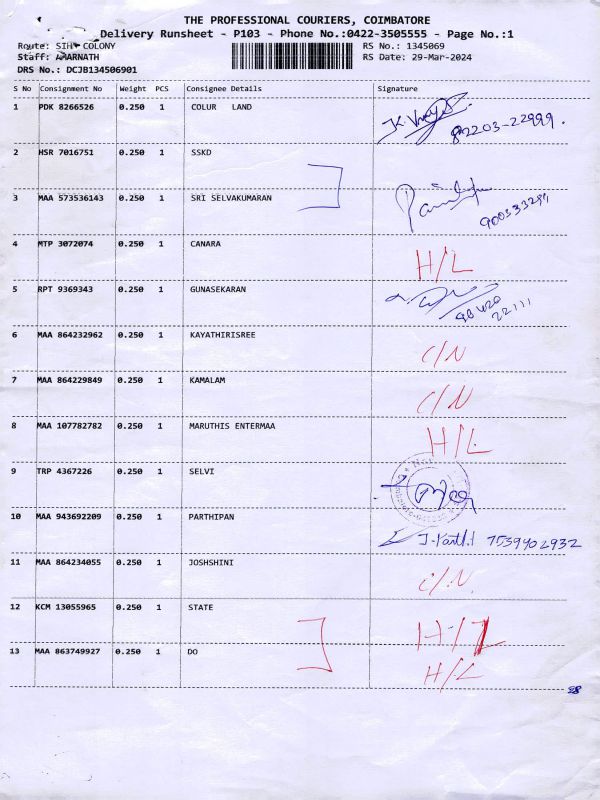 THE PROFESSIONAL COURIERS, COIMBATORE
Delivery Runsheet - P103 - Phone No.:0422-3505555 - Page No.:1
Route: SIH COLONY RS No.: 1345069
Staff: AMARNATH RS Date: 29-Mar-2024
DRS No.: DCJB134506901
S No Consignment No Weight PCS Consignee Details Signature
1 PDK 8266526 0.250 1 COLUR LAND
82203-22999.
2 HSR 7016751 0.250 1 SSKD
3 MAA 573536143 0.250 1 SRI SELVAKUMARAN
4 MTP 3072074 0.250 1 CANARA H/L
5 RPT 9369343 0.250 1 GUNASEKARAN
98420
22111
6 MAA 864232962 0.250 1 KAYATHIRISREE C/N
7 MAA 864229849 0.250 1 KAMALAM C/N
8 MAA 107782782 0.250 1 MARUTHIS ENTERMAA H/L
9 TRP 4367226 0.250 1 SELVI
10 MAA 943692209 0.250 1 PARTHIPAN
7539902932
11 MAA 864234055 0.250 1 JOSHSHINI C/N.
12 KCM 13055965 0.250 1 STATE H/L
13 MAA 863749927 0.250 1 DO H/L
28